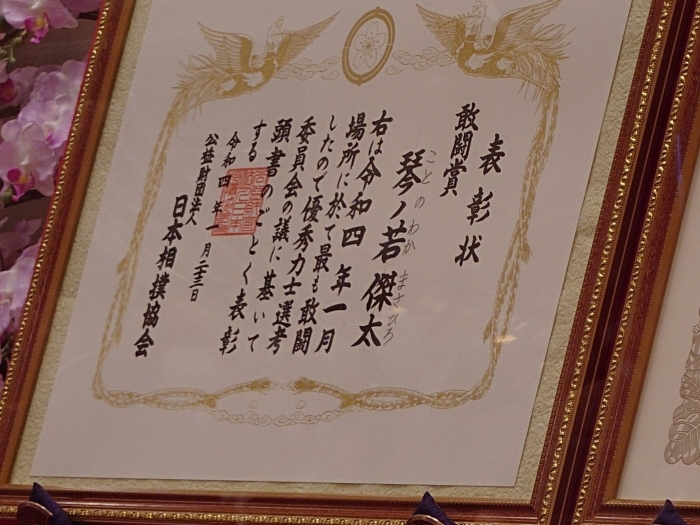 表彰状
敢闘賞
琴ノ若傑太
ことのわか
まさひろ
右は令和四年一月
場所に於て最も敢闘
したので優秀力士選考
委員会の議に基いて
頭書のごとく表彰
する
令和四年一月二十三日
公益財団法人
日本相撲協会